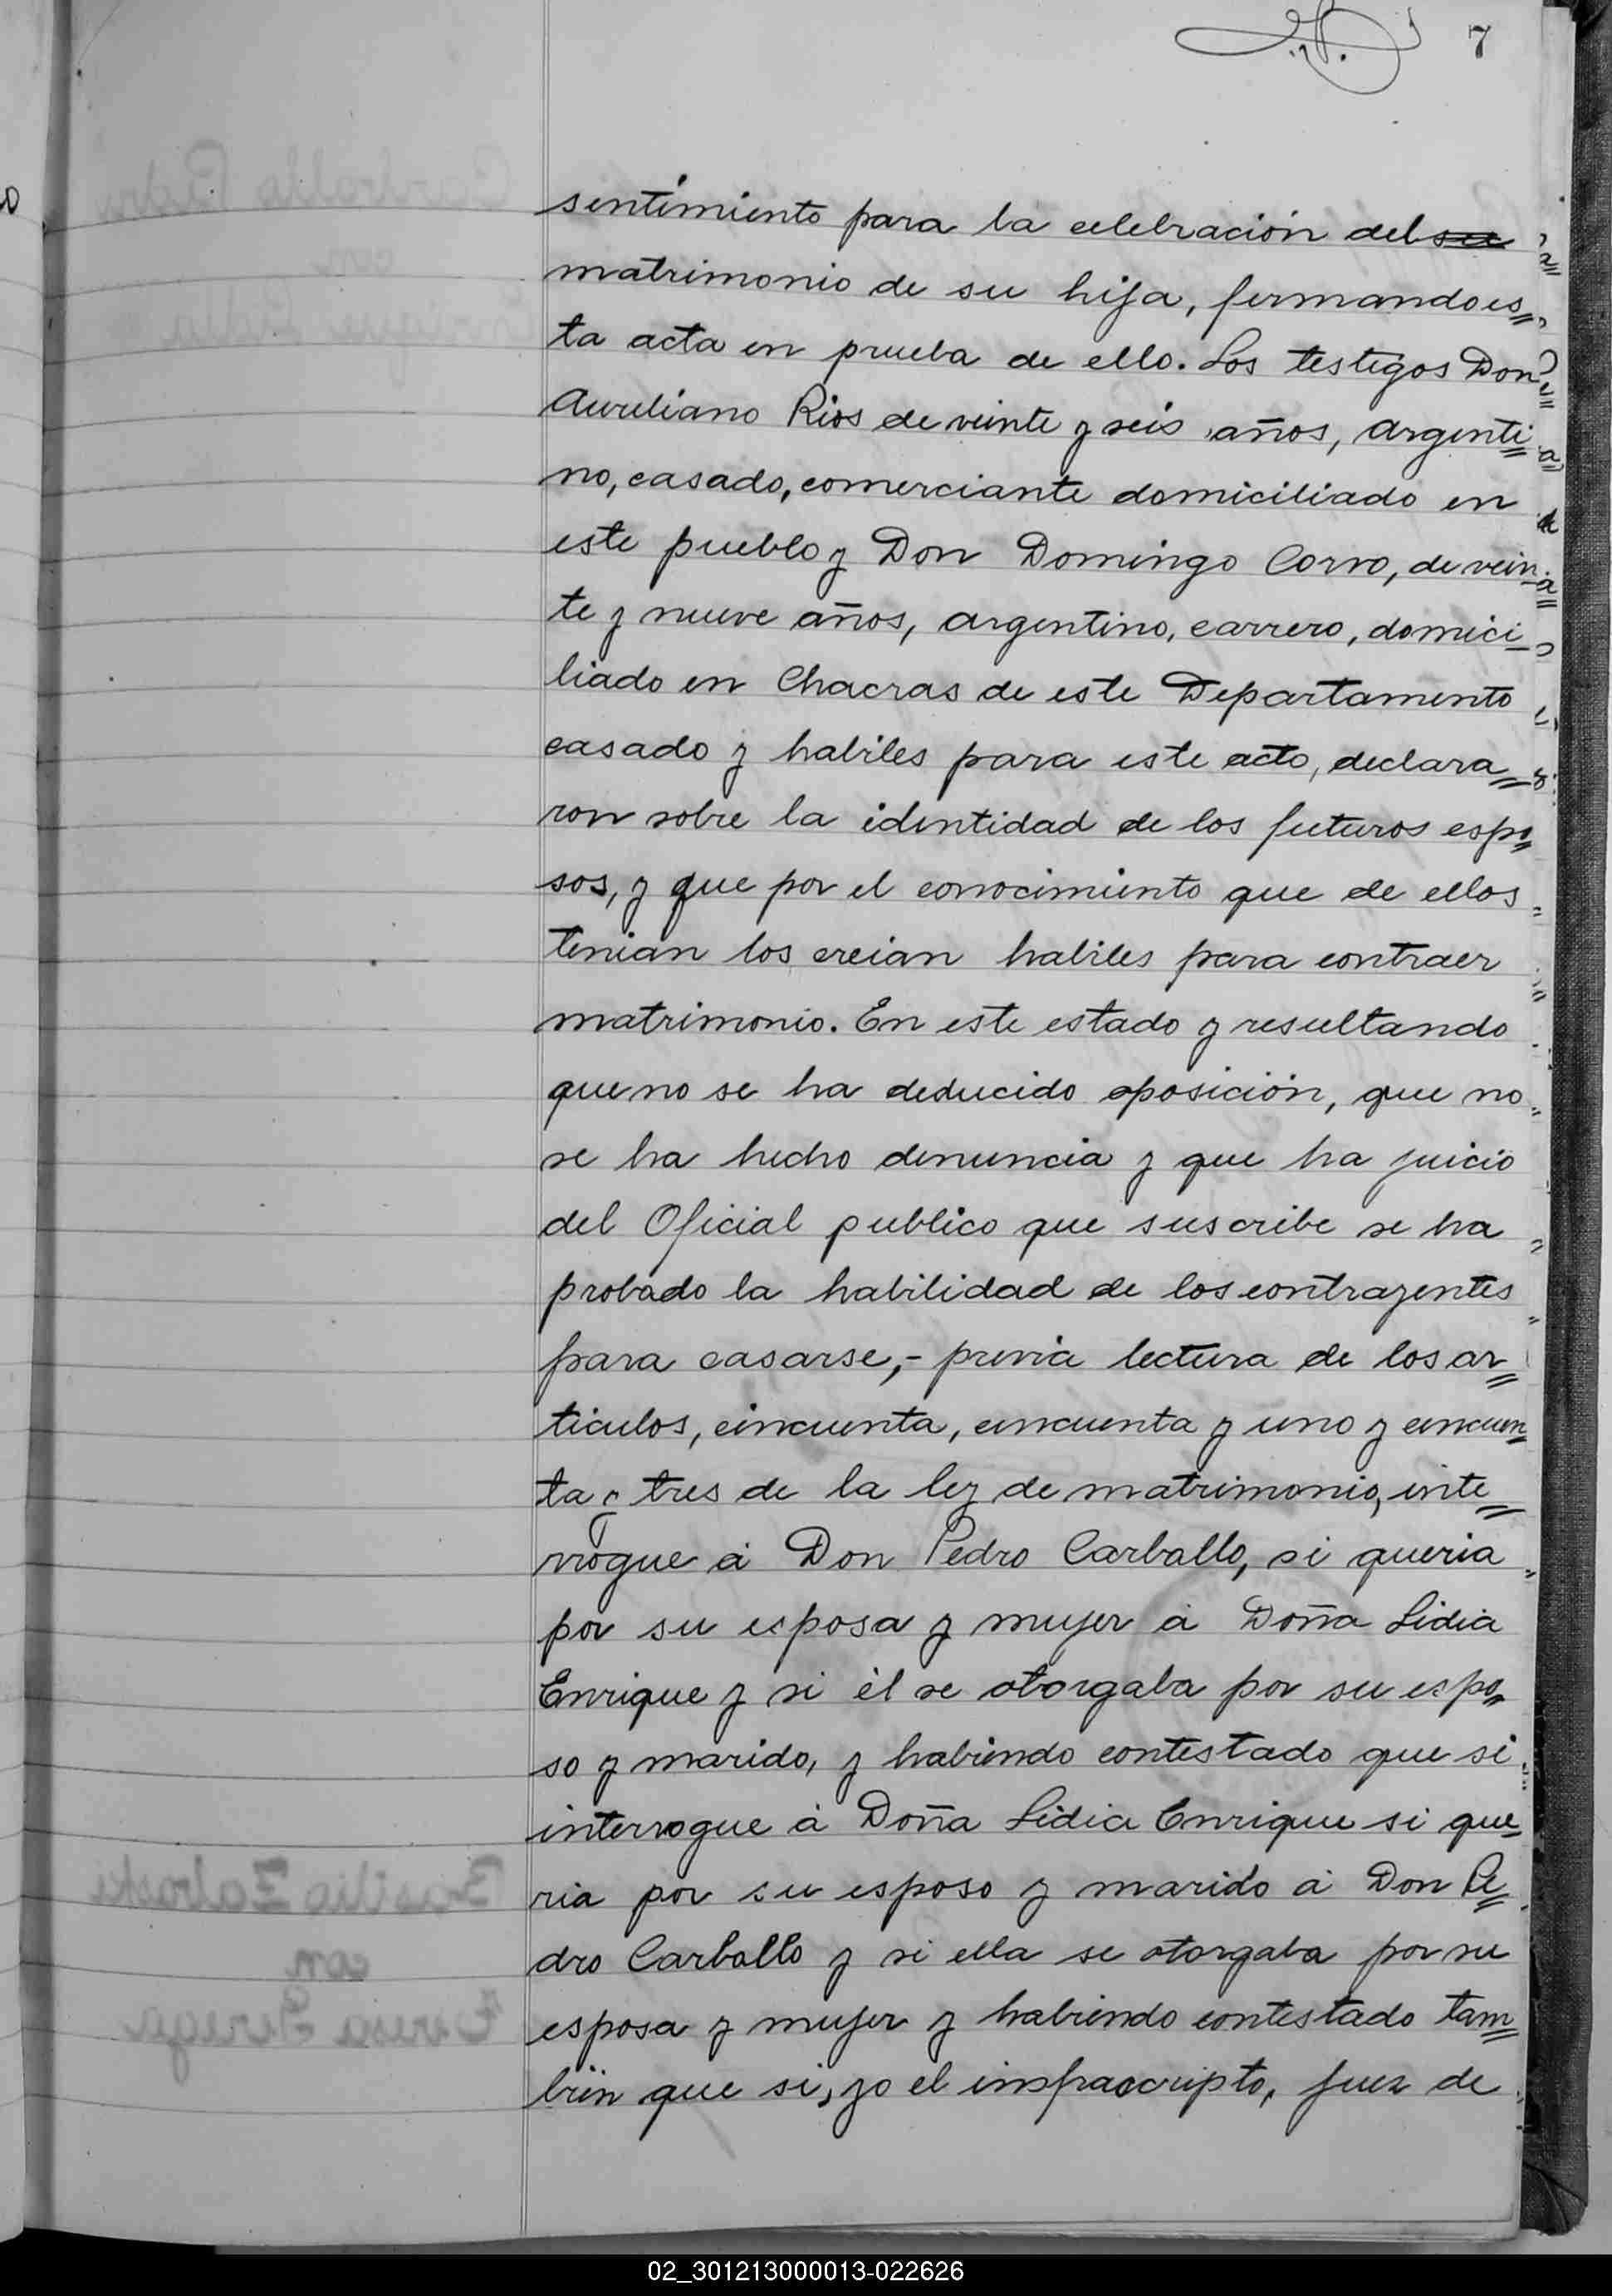 7
sentimiento para la celebración del su
matrimonio de su hija, firmando es=
ta acta en prueba de ello. Los testigos Don
Aureliano Rios de veinte y seis años, argenti=
no, casado, comerciante domiciliado en
este pueblo y Don Domingo Corvo, de vein-
te y nueve años, argentino, carrero, domici-
liado en Chacras de este Departamento
casado y habiles para este acto, declara=
ron sobre la identidad de los futuros espo=
sos, y que por el conocimiento que de ellos
tenian los creian habiles para contraer
matrimonio. En este estado y resultando
que no se ha deducido oposición, que no
se ha hecho denuncia y que ha juicio
del Oficial publico que suscribe se ha
probado la habilidad de los contrayentes
para casarse,- previa lectura de los ar=
ticulos, cincuenta, cincuenta y uno y cincuen=
ta y tres de la ley de matrimonio, inte=
rrogue á Don Pedro Carballo, si queria
por su esposa y mujer á Doña Lidia
Enrique y si él se otorgaba por su espo=
so y marido, y habiendo contestado que si
interrogue á Doña Lidia Enrique si que=
ria por su esposo y marido á Don Pe=
dro Carballo y si ella se otorgaba por su
esposa y mujer y habiendo contestado tam=
bién que si, yo el infrascripto, Juez de
02_301213000013-022626